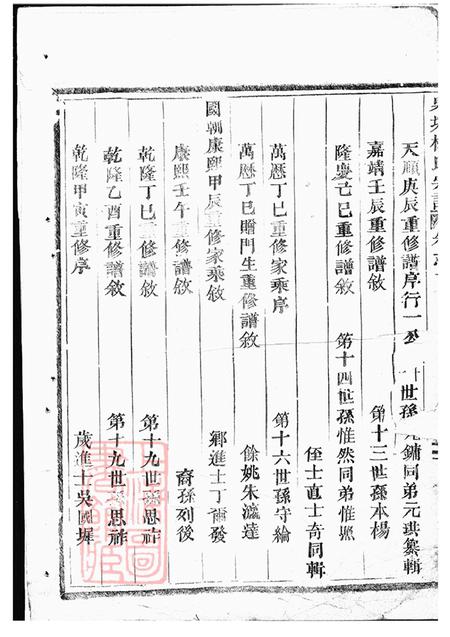 天順庚辰重修譜序行一公 世孫 鏞同弟元珙纂輯
嘉靖壬辰重修譜敘 第十三世孫本楊
隆慶己巳重修譜敘 第十四世孫惟然同弟惟熈
侄士直士奇同輯
萬曆丁巳重修家乘序 第十六世孫守綸
萬曆丁巳贈門生重修譜敘 餘姚朱瀛達
國朝康熙甲辰重修家乘敘 鄉進士丁爾發
康熙壬午重修譜敘 裔孫列後
乾隆丁巳重修譜敘 第十九世孫思祚
乾隆乙酉重修譜敘 第十九世孫思祚
乾隆甲寅重修序 歲進士吳國墀